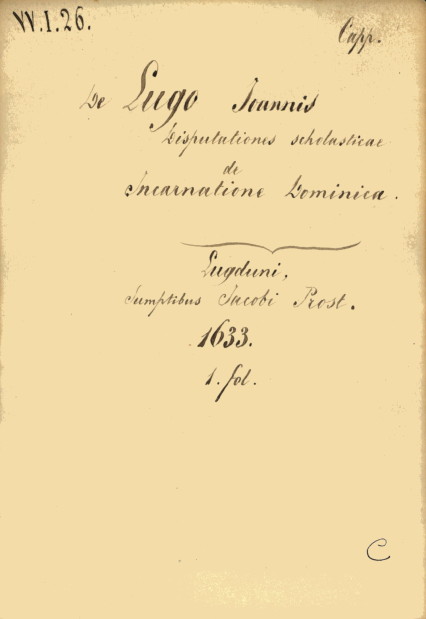 VV.I.26.
Capp.
De Lugo Joannis
Disputationes scholasticae
de
Incarnatione Dominica.
Lugduni,
Sumptibus Jacobi Prost.
1633.
1. fol.
C